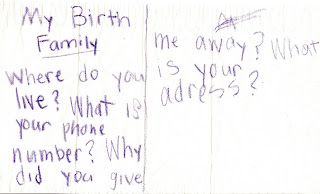 My Birth
Family
Where do you
live? What is
your phone
number? Why
did you give
me away? What
is your
adress?